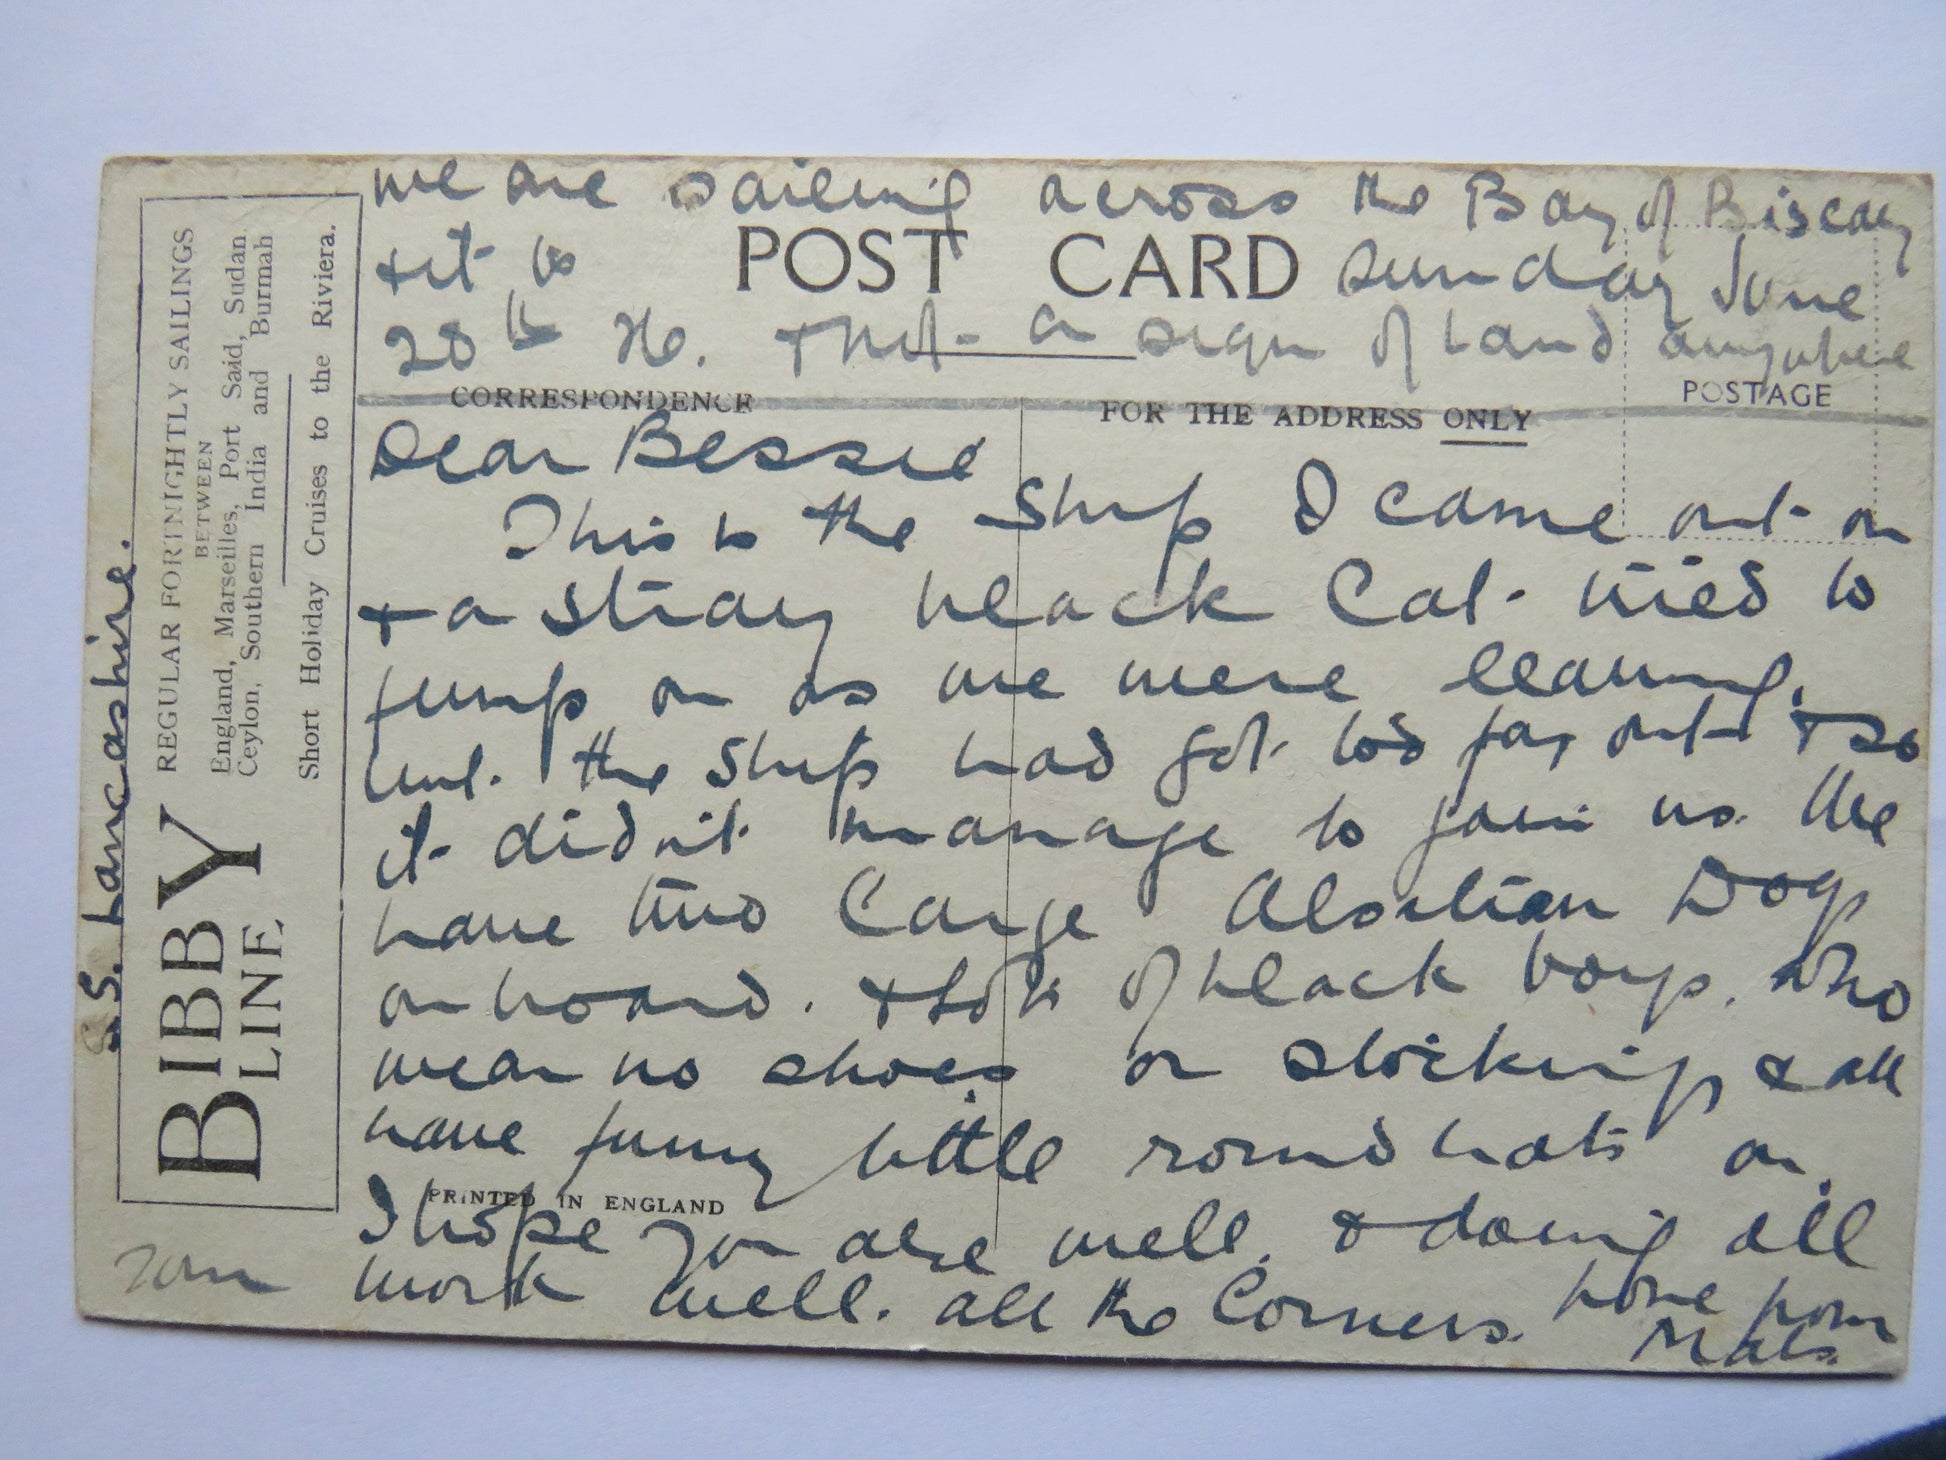 we are sailing across the Bay of Biscay
& it is
POST CARD
Sunday June
28th 36. & Not a sign of Land anywhere
CORRESPONDENCE
FOR THE ADDRESS ONLY
POSTAGE
Dear Bessie
This is the Ship I came out on
& a stray black Cat tried to
jump on as we were leaving.
but the Ship had got too far out & so
it didn't manage to join us. We
have two Large Alsatian Dogs
on board. & lots of black boys. who
wear no shoes or stockings & all
have funny little round hats on.
PRINTED IN ENGLAND
I hope you are well. & doing all
work well. all the Corners. love from
Mats.
S.S. Lancashire.
BIBBY
LINE
REGULAR FORTNIGHTLY SAILINGS
BETWEEN
England, Marseilles, Port Said, Sudan
Ceylon, Southern India and Burmah
Short Holiday Cruises to the Riviera.